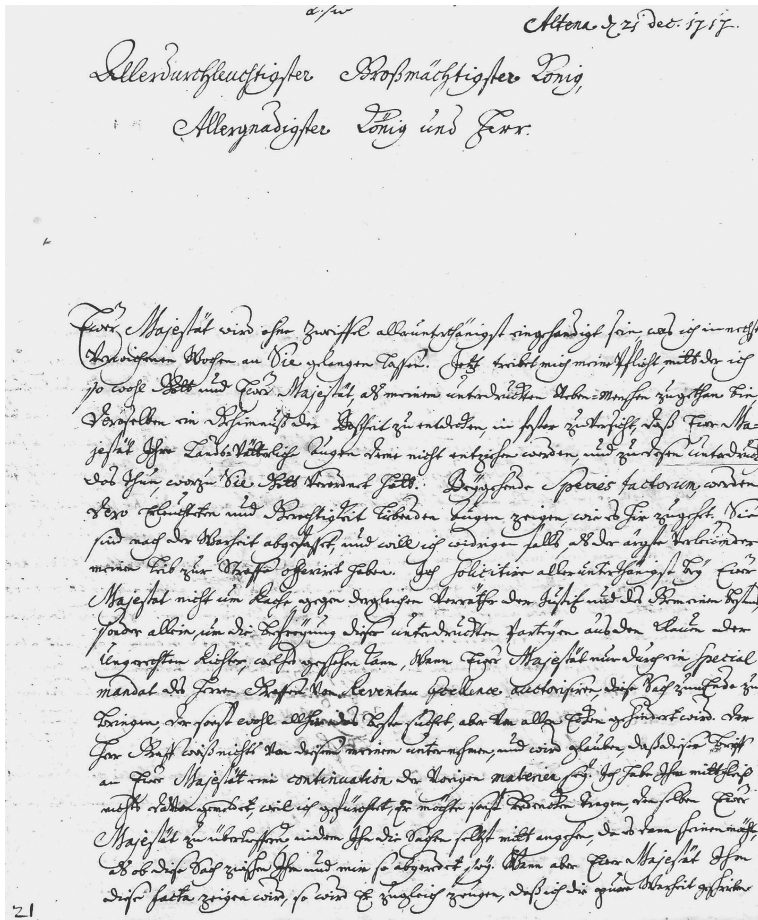 Altena d 21 dec. 1717.
Allerdurchleuchtigster Großmächtigster König,
Allergnädigster König und Herr.
Ewer Majestät wird ohne Zweiffel allerunterthänigst eingehändigt sein was ich in nechst
verwichenen Wochen an Sie gelangen lassen. Jetzt treibet mich meine Pflicht, mitt der ich
so wohl Gott und Ewer Majestät, als meinem unterdruckten Neben-Menschen zugethan bin
Deroselben ein Geheimnuß der Boßheit zu entdecken, in fester Zuversicht, daß Ewer Ma-
jestät Ihre Lands-Vätterlich Augen davon nicht entziehen werden, und zu dessen unterdruck
das thun, worzu Sie Gott verordnet hatt. Beygehende Species factorum, werden
Dero Erleuchteten und Gerechtigkeit liebenden Augen zeigen, wie es hir zugehet. Sie
sind nach der Warheit abgefasset, und will ich widrigen falls, als der ärgste Verleumder
meinen Leib zur Straffe offerirt haben. Ich sollicitire allerunterthänigst bey Ewer
Majestät nicht um Rache gegen dergleichen Verräther der Justiz und des Gemeinen Bestens
sonder allein um die Befreyung dieser unterdruckten Partheyen aus den Klauen der
Ungerechten Richter, welches geschehen kann, wann Ewer Majestät nur durch ein special
mandat des Herrn Graffen von Reventlau Excellence auctorisiren, diese Sach zum Ende zu
bringen, der sonst wohl allhier das Beste suchet, aber von allen Ecken gehindert wird. Der
Herr Graff weiß nichts von diesem meinem unternehmen, und wird glauben, daß dieser Brieff
an Ewer Majestät eine continuation der vorigen materien sey. Ich habe Ihm mitt fleiß
nichts davon gemeldet, weil ich gefürchtet, Er möchte sonst bedencken tragen, denselben Ewer
Majestät zu überliefferen, indem Ihn die Sachen selbst mitt angehen, da es dann scheinen möcht,
als ob diese Sach zwischen Ihm und mir so abgeredet sey. Wann aber Ewer Majestät Ihm
diese facta zeigen wird, so wird Er zugleich zeugen, daß ich die pure Warheit geschrieben
21